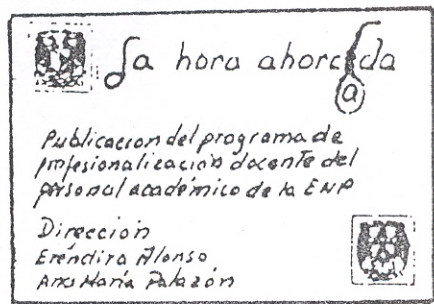 La hora ahorcada
Publicación del programa de
profesionalización docente del
personal académico de la ENP
Dirección
Eréndira Alonso
Ana María Palazón